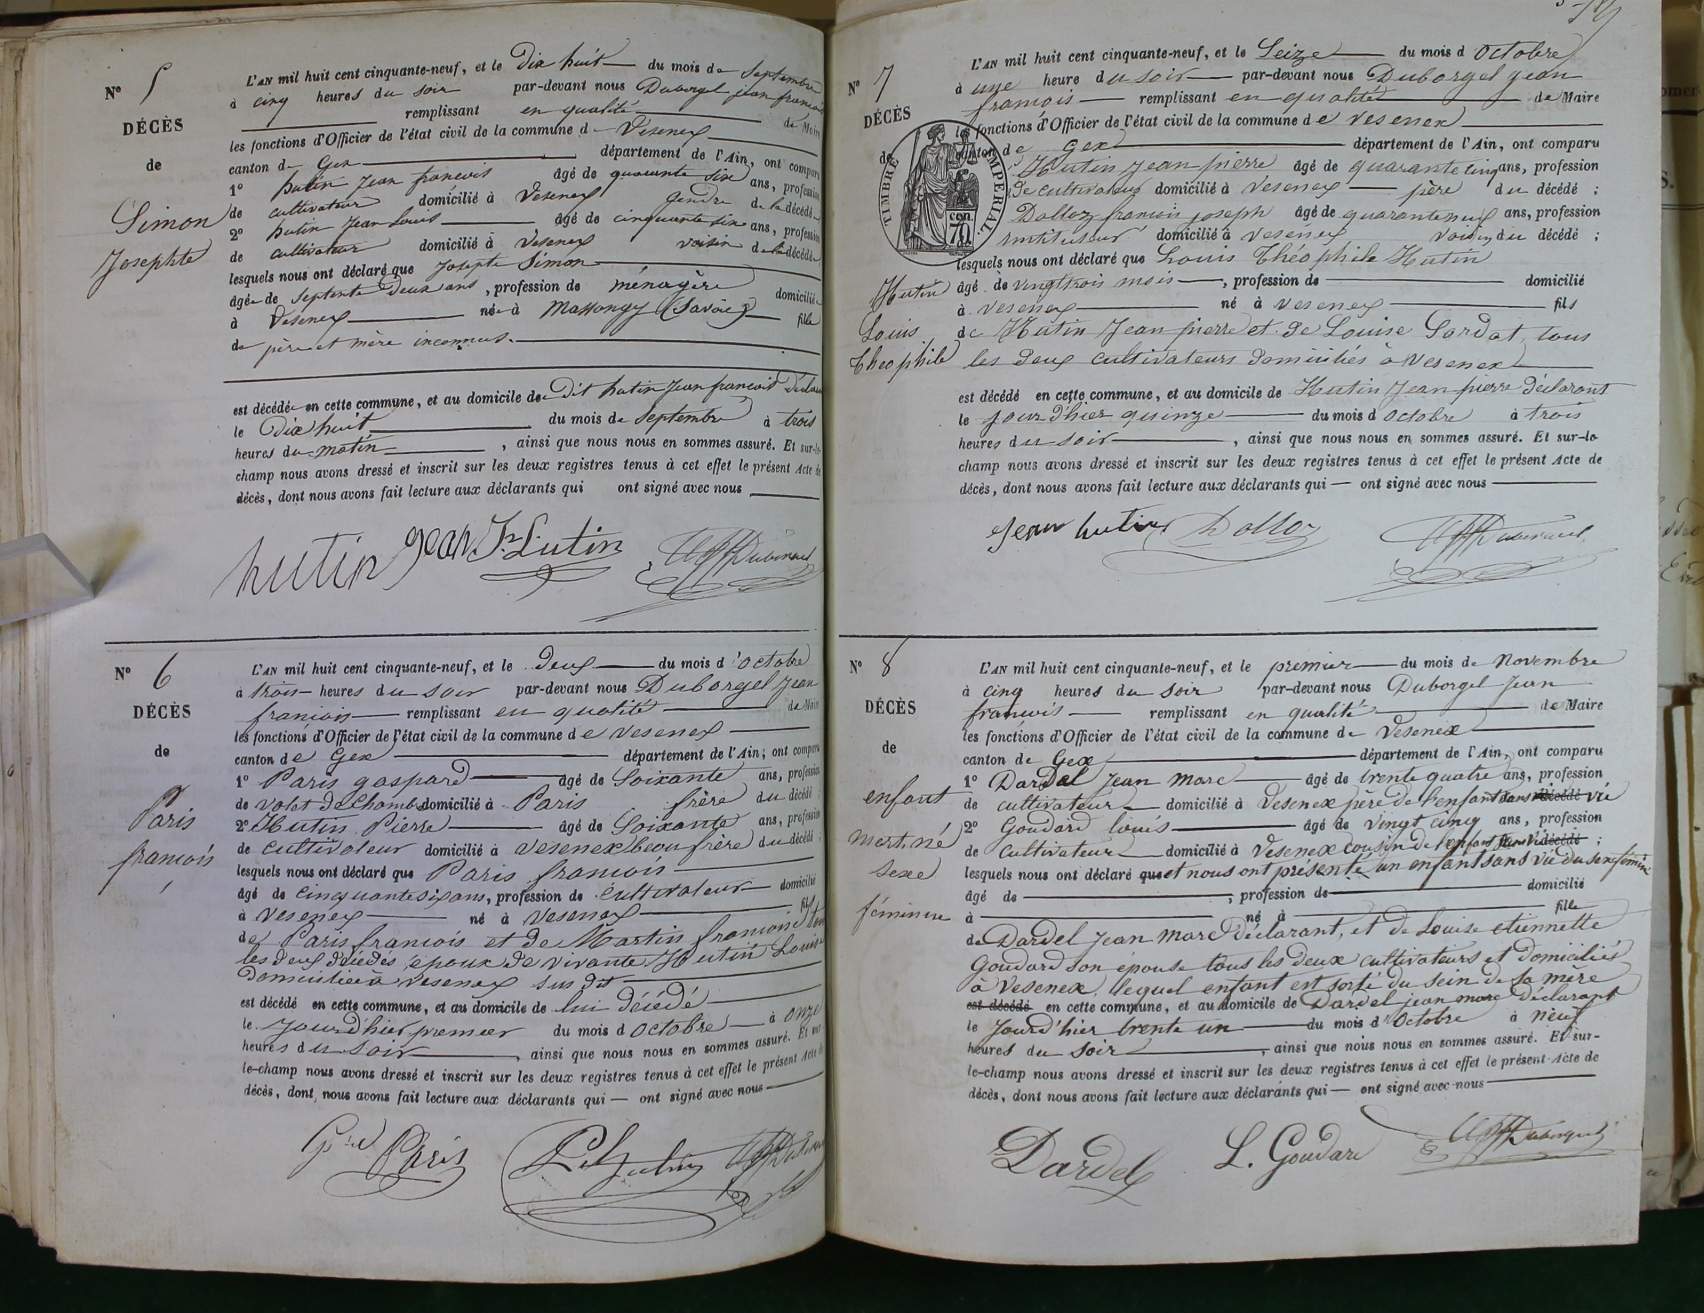 N° 5
DÉCÈS
de
Simon
Josephte
L'AN mil huit cent cinquante-neuf, et le Dix huit du mois de Septembre
à cinq heures du soir par-devant nous Duborgel jean francois
remplissant en qualité de Maire
les fonctions d'Officier de l'état civil de la commune de Vesenex
canton de Gex département de l'Ain, ont comparu
1° hutin Jean francois âgé de quarante six ans, profession
de cultivateur domicilié à Vesenex gendre de la décédée
2° hutin Jean Louis âgé de cinquante six ans, profession
de cultivateur domicilié à Vesenex voisin de la décédée
lesquels nous ont déclaré que Josepte Simon
âgée de Septente Deux ans, profession de ménagère domiciliée
à Vesenex née à Massongy (Savoie) fille
de père et mère inconnus.
est décédée en cette commune, et au domicile de Dit hutin Jean francois déclarant
le Dix huit du mois de Septembre à trois
heures du matin, ainsi que nous nous en sommes assuré. Et sur-le-
champ nous avons dressé et inscrit sur les deux registres tenus à cet effet le présent Acte de
décès, dont nous avons fait lecture aux déclarants qui ont signé avec nous
hutin jean
N° 6
DÉCÈS
de
Paris
francois
L'AN mil huit cent cinquante-neuf, et le Deux du mois d'octobre
à trois heures du soir par-devant nous Duborgel Jean
francois remplissant en qualité de Maire
les fonctions d'Officier de l'état civil de la commune de Vesenex
canton de Gex département de l'Ain; ont comparu
1° Paris gaspard âgé de Soixante ans, profession
de valet de Chambre domicilié à Paris frère du décédé
2° Hutin Pierre âgé de Soixante ans, profession
de cultivateur domicilié à Vesenex beau frère du décédé
lesquels nous ont déclaré que Paris francois
âgé de cinquante six ans, profession de cultivateur domicilié
à Vesenex né à Vesenex fils
de Paris francois et de Martin francoise tous
les deux décédés, époux de vivante Hutin Louise
Domiciliée à Vesenex sus dit
est décédé en cette commune, et au domicile de lui décédé
le jour d'hier premier du mois d'octobre à onze
heures du soir, ainsi que nous nous en sommes assuré. Et sur-
le-champ nous avons dressé et inscrit sur les deux registres tenus à cet effet le présent Acte de
décès, dont nous avons fait lecture aux déclarants qui — ont signé avec nous
Paris
N° 7
DÉCÈS
de
Hutin
Louis
Théophile
TIMBRE IMPERIAL
L'AN mil huit cent cinquante-neuf, et le Seize du mois d'octobre
à une heure du soir par-devant nous Duborgel jean
francois remplissant en qualité de Maire
les fonctions d'Officier de l'état civil de la commune de Vesenex
canton de Gex département de l'Ain, ont comparu
Hutin Jean pierre âgé de quarante cinq ans, profession
de cultivateur domicilié à Vesenex père du décédé;
Dolloz francois joseph âgé de quarante neuf ans, profession
instituteur domicilié à Vesenex voisin du décédé;
lesquels nous ont déclaré que Louis Théophile Hutin
âgé de vingt trois mois, profession de domicilié
à Vesenex né à Vesenex fils
de Hutin Jean pierre et de Louise Gardat, tous
les deux cultivateurs domiciliés à Vesenex
est décédé en cette commune, et au domicile de Hutin Jean pierre déclarant
le jour d'hier quinze du mois d'octobre à trois
heures du soir, ainsi que nous nous en sommes assuré. Et sur-le-
champ nous avons dressé et inscrit sur les deux registres tenus à cet effet le présent Acte de
décès, dont nous avons fait lecture aux déclarants qui — ont signé avec nous
Jean hutin Dolloz
N° 8
DÉCÈS
de
enfant
mort né
sexe
féminin
L'AN mil huit cent cinquante-neuf, et le premier du mois de Novembre
à cinq heures du soir par-devant nous Duborgel Jean
francois remplissant en qualité de Maire
les fonctions d'Officier de l'état civil de la commune de Vesenex
canton de Gex département de l'Ain, ont comparu
1° Dardel Jean Marc âgé de trente quatre ans, profession
de cultivateur domicilié à Vesenex père de l'enfant sans décédé vie
2° Goudard Louis âgé de vingt cinq ans, profession
de cultivateur domicilié à Vesenex cousin de l'enfant sans vie décédé;
lesquels nous ont déclaré que et nous ont présenté un enfant sans vie du sexe féminin
âgé de, profession de domicilié
à né à fille
de Dardel Jean Marc déclarant, et de Louise etiennette
Goudard son épouse tous les deux cultivateurs et domiciliés
à Vesenex, lequel enfant est sorti du sein de sa mère
est décédé en cette commune, et au domicile de Dardel jean marc déclarant
le jour d'hier trente un du mois d'octobre à neuf
heures du soir, ainsi que nous nous en sommes assuré. Et sur-
le-champ nous avons dressé et inscrit sur les deux registres tenus à cet effet le présent Acte de
décès, dont nous avons fait lecture aux déclarants qui — ont signé avec nous
Dardel L. Goudard